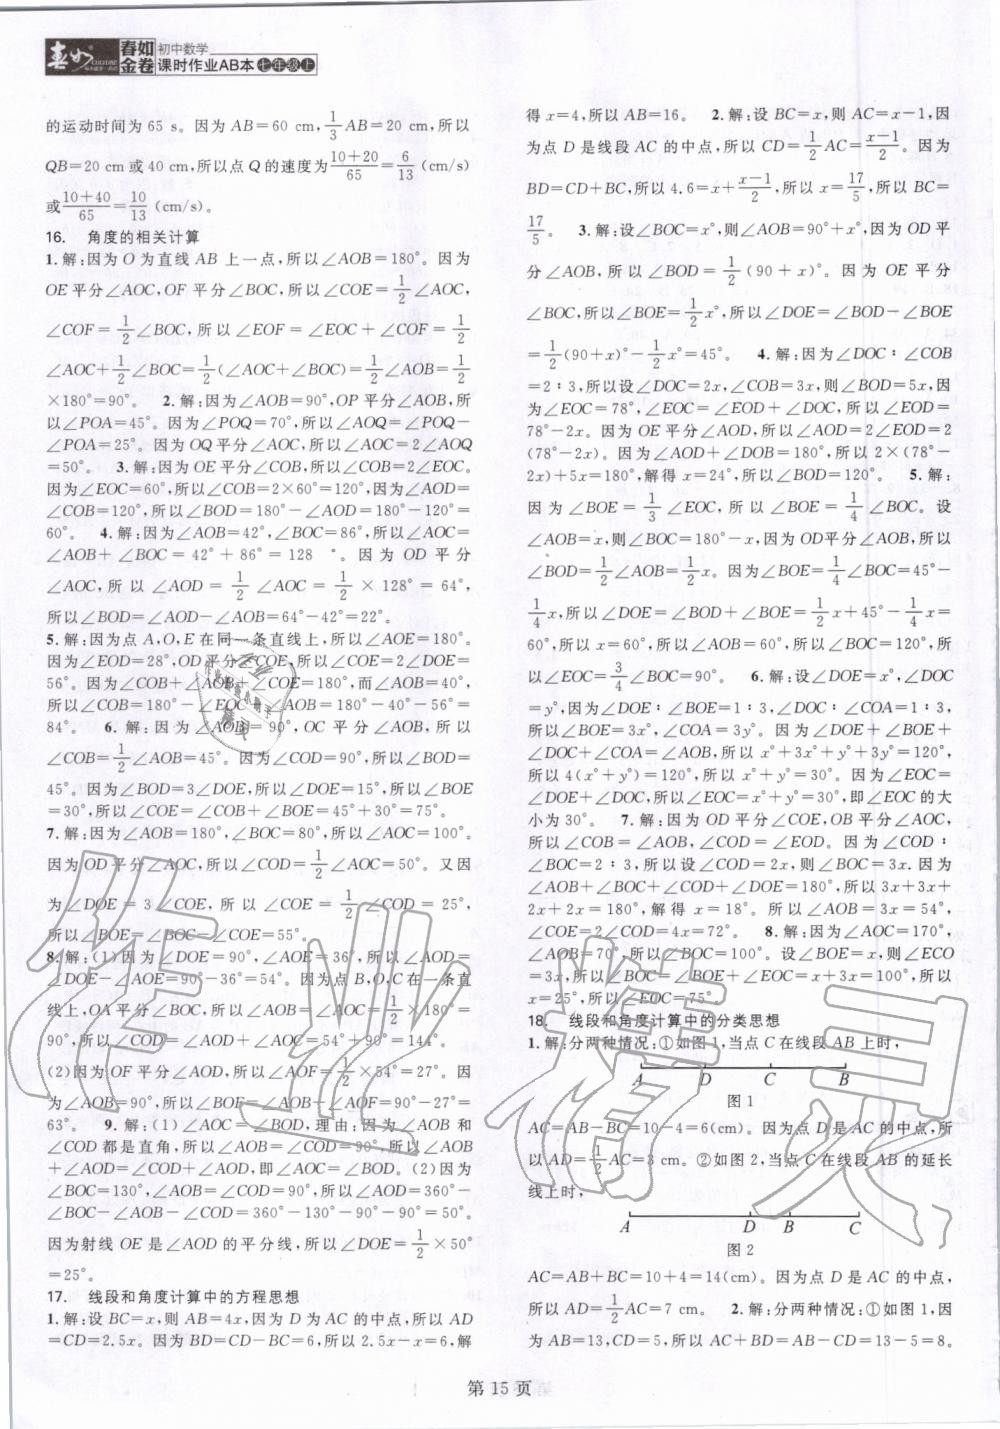 春如金卷
初中数学
课时作业AB本 七年级上
的运动时间为 65 s。因为 AB=60 cm, 1/3 AB=20 cm,所以
QB=20 cm 或 40 cm,所以点 Q 的速度为 (10+20)/65 = 6/13 (cm/s)
或 (10+40)/65 = 10/13 (cm/s)。
16. 角度的相关计算
1. 解:因为 O 为直线 AB 上一点,所以∠AOB=180°。因为
OE 平分∠AOC,OF 平分∠BOC,所以∠COE=1/2∠AOC,
∠COF=1/2∠BOC,所以∠EOF=∠EOC+∠COF=1/2
∠AOC+1/2∠BOC=1/2(∠AOC+∠BOC)=1/2∠AOB=1/2
×180°=90°。 2. 解:因为∠AOB=90°,OP 平分∠AOB,所
以∠POA=45°。因为∠POQ=70°,所以∠AOQ=∠POQ-
∠POA=25°。因为 OQ 平分∠AOC,所以∠AOC=2∠AOQ
=50°。 3. 解:因为 OE 平分∠COB,所以∠COB=2∠EOC。
因为∠EOC=60°,所以∠COB=2×60°=120°,因为∠AOD=
∠COB=120°,所以∠BOD=180°-∠AOD=180°-120°=
60°。 4. 解:因为∠AOB=42°,∠BOC=86°,所以∠AOC=
∠AOB+∠BOC=42°+86°=128 °。因为 OD 平分
∠AOC,所以∠AOD=1/2∠AOC=1/2×128°=64°,
所以∠BOD=∠AOD-∠AOB=64°-42°=22°。
5. 解:因为点 A,O,E 在同一条直线上,所以∠AOE=180°。
因为∠EOD=28°,OD 平分∠COE,所以∠COE=2∠DOE=
56°。因为∠COB+∠AOB+∠COE=180°,而∠AOB=40°,
所以∠COB=180°-∠EOC-∠AOB=180°-40°-56°=
84°。 6. 解:因为∠AOB=90°,OC 平分∠AOB,所以
∠COB=1/2∠AOB=45°。因为∠COD=90°,所以∠BOD=
45°。因为∠BOD=3∠DOE,所以∠DOE=15°,所以∠BOE
=30°,所以∠COE=∠COB+∠BOE=45°+30°=75°。
7. 解:因为∠AOB=180°,∠BOC=80°,所以∠AOC=100°。
因为 OD 平分∠AOC,所以∠COD=1/2∠AOC=50°。又因
为∠DOE=3∠COE,所以∠COE=1/2∠COD=25°,
所以∠BOE=∠BOC-∠COE=55°。
8. 解:(1)因为∠DOE=90°,∠AOE=36°,所以∠AOD=
∠DOE-∠AOE=90°-36°=54°。因为点 B,O,C 在一条直
线上,OA 平分∠BOC,所以∠AOB=∠AOC=1/2×180°=
90°,所以∠COD=∠AOD+∠AOC=54°+90°=144°。
(2)因为 OF 平分∠AOD,所以∠AOF=1/2×54°=27°。因
为∠AOB=90°,所以∠BOF=∠AOB-∠AOF=90°-27°=
63°。 9. 解:(1)∠AOC=∠BOD,理由:因为∠AOB 和
∠COD 都是直角,所以∠AOB=∠COD=90°,所以∠AOB
+∠AOD=∠COD+∠AOD,即∠AOC=∠BOD。(2)因为
∠BOC=130°,∠AOB=∠COD=90°,所以∠AOD=360°-
∠BOC-∠AOB-∠COD=360°-130°-90°-90°=50°。
因为射线 OE 是∠AOD 的平分线,所以∠DOE=1/2×50°
=25°。
17. 线段和角度计算中的方程思想
1. 解:设 BC=x,则 AB=4x,因为 D 为 AC 的中点,所以 AD
=CD=2.5x。因为 BD=CD-BC=6,所以 2.5x-x=6,解
得 x=4,所以 AB=16。 2. 解:设 BC=x,则 AC=x-1,因
为点 D 是线段 AC 的中点,所以 CD=1/2 AC=(x-1)/2。因为
BD=CD+BC,所以 4.6=x+(x-1)/2,所以 x=17/5,所以 BC=
17/5。 3. 解:设∠BOC=x°,则∠AOB=90°+x°,因为 OD 平
分∠AOB,所以∠BOD=1/2(90+x)°。因为 OE 平分
∠BOC,所以∠BOE=1/2x°,所以∠DOE=∠BOD-∠BOE
=1/2(90+x)°-1/2x°=45°。 4. 解:因为∠DOC∶∠COB
=2∶3,所以设∠DOC=2x,∠COB=3x,则∠BOD=5x,因
为∠EOC=78°,∠EOC=∠EOD+∠DOC,所以∠EOD=
78°-2x。因为 OE 平分∠AOD,所以∠AOD=2∠EOD=2
(78°-2x)。因为∠AOD+∠DOB=180°,所以 2×(78°-
2x)+5x=180°,解得 x=24°,所以∠BOD=120°。 5. 解:
因为∠BOE=1/3∠EOC,所以∠BOE=1/4∠BOC。设
∠AOB=x,则∠BOC=180°-x,因为 OD平分∠AOB,所以
∠BOD=1/2∠AOB=1/2x。因为∠BOE=1/4∠BOC=45°-
1/4x,所以∠DOE=∠BOD+∠BOE=1/2x+45°-1/4x=
60°,所以 x=60°,所以∠AOB=60°,所以∠BOC=120°,所
以∠EOC=3/4∠BOC=90°。 6. 解:设∠DOE=x°,∠DOC
=y°,因为∠DOE∶∠BOE=1∶3,∠DOC∶∠COA=1∶3,
所以∠BOE=3x°,∠COA=3y°。因为∠DOE+∠BOE+
∠DOC+∠COA=∠AOB,所以 x°+3x°+y°+3y°=120°,
所以 4(x°+y°)=120°,所以 x°+y°=30°。因为∠EOC=
∠DOE+∠DOC,所以∠EOC=x°+y°=30°,即∠EOC 的大
小为 30°。 7. 解:因为 OD 平分∠COE,OB 平分∠AOC,
所以∠COB=∠AOB,∠COD=∠EOD。因为∠COD∶
∠BOC=2∶3,所以设∠COD=2x,则∠BOC=3x.因为
∠AOB+∠BOC+∠COD+∠DOE=180°,所以 3x+3x+
2x+2x=180°,解得 x=18°。所以∠AOB=3x=54°,
∠COE=2∠COD=4x=72°。 8. 解:因为∠AOC=170°,
∠AOB=70°,所以∠BOC=100°。设∠BOE=x,则∠ECO
=3x,所以∠BOC=∠BOE+∠EOC=x+3x=100°,所以
x=25°,所以∠EOC=75°。
18. 线段和角度计算中的分类思想
1. 解:分两种情况:①如图 1,当点 C 在线段 AB 上时,
A D C B
图 1
AC=AB-BC=10-4=6(cm)。因为点 D 是 AC 的中点,所
以 AD=1/2AC=3 cm。②如图 2,当点 C 在线段 AB 的延长
线上时,
A D B C
图 2
AC=AB+BC=10+4=14(cm)。因为点 D 是 AC 的中点,
所以 AD=1/2AC=7 cm。 2. 解:分两种情况:①如图 1,因
为 AB=13,CD=5,所以 AC+BD=AB-CD=13-5=8。
第 15 页
作业精灵